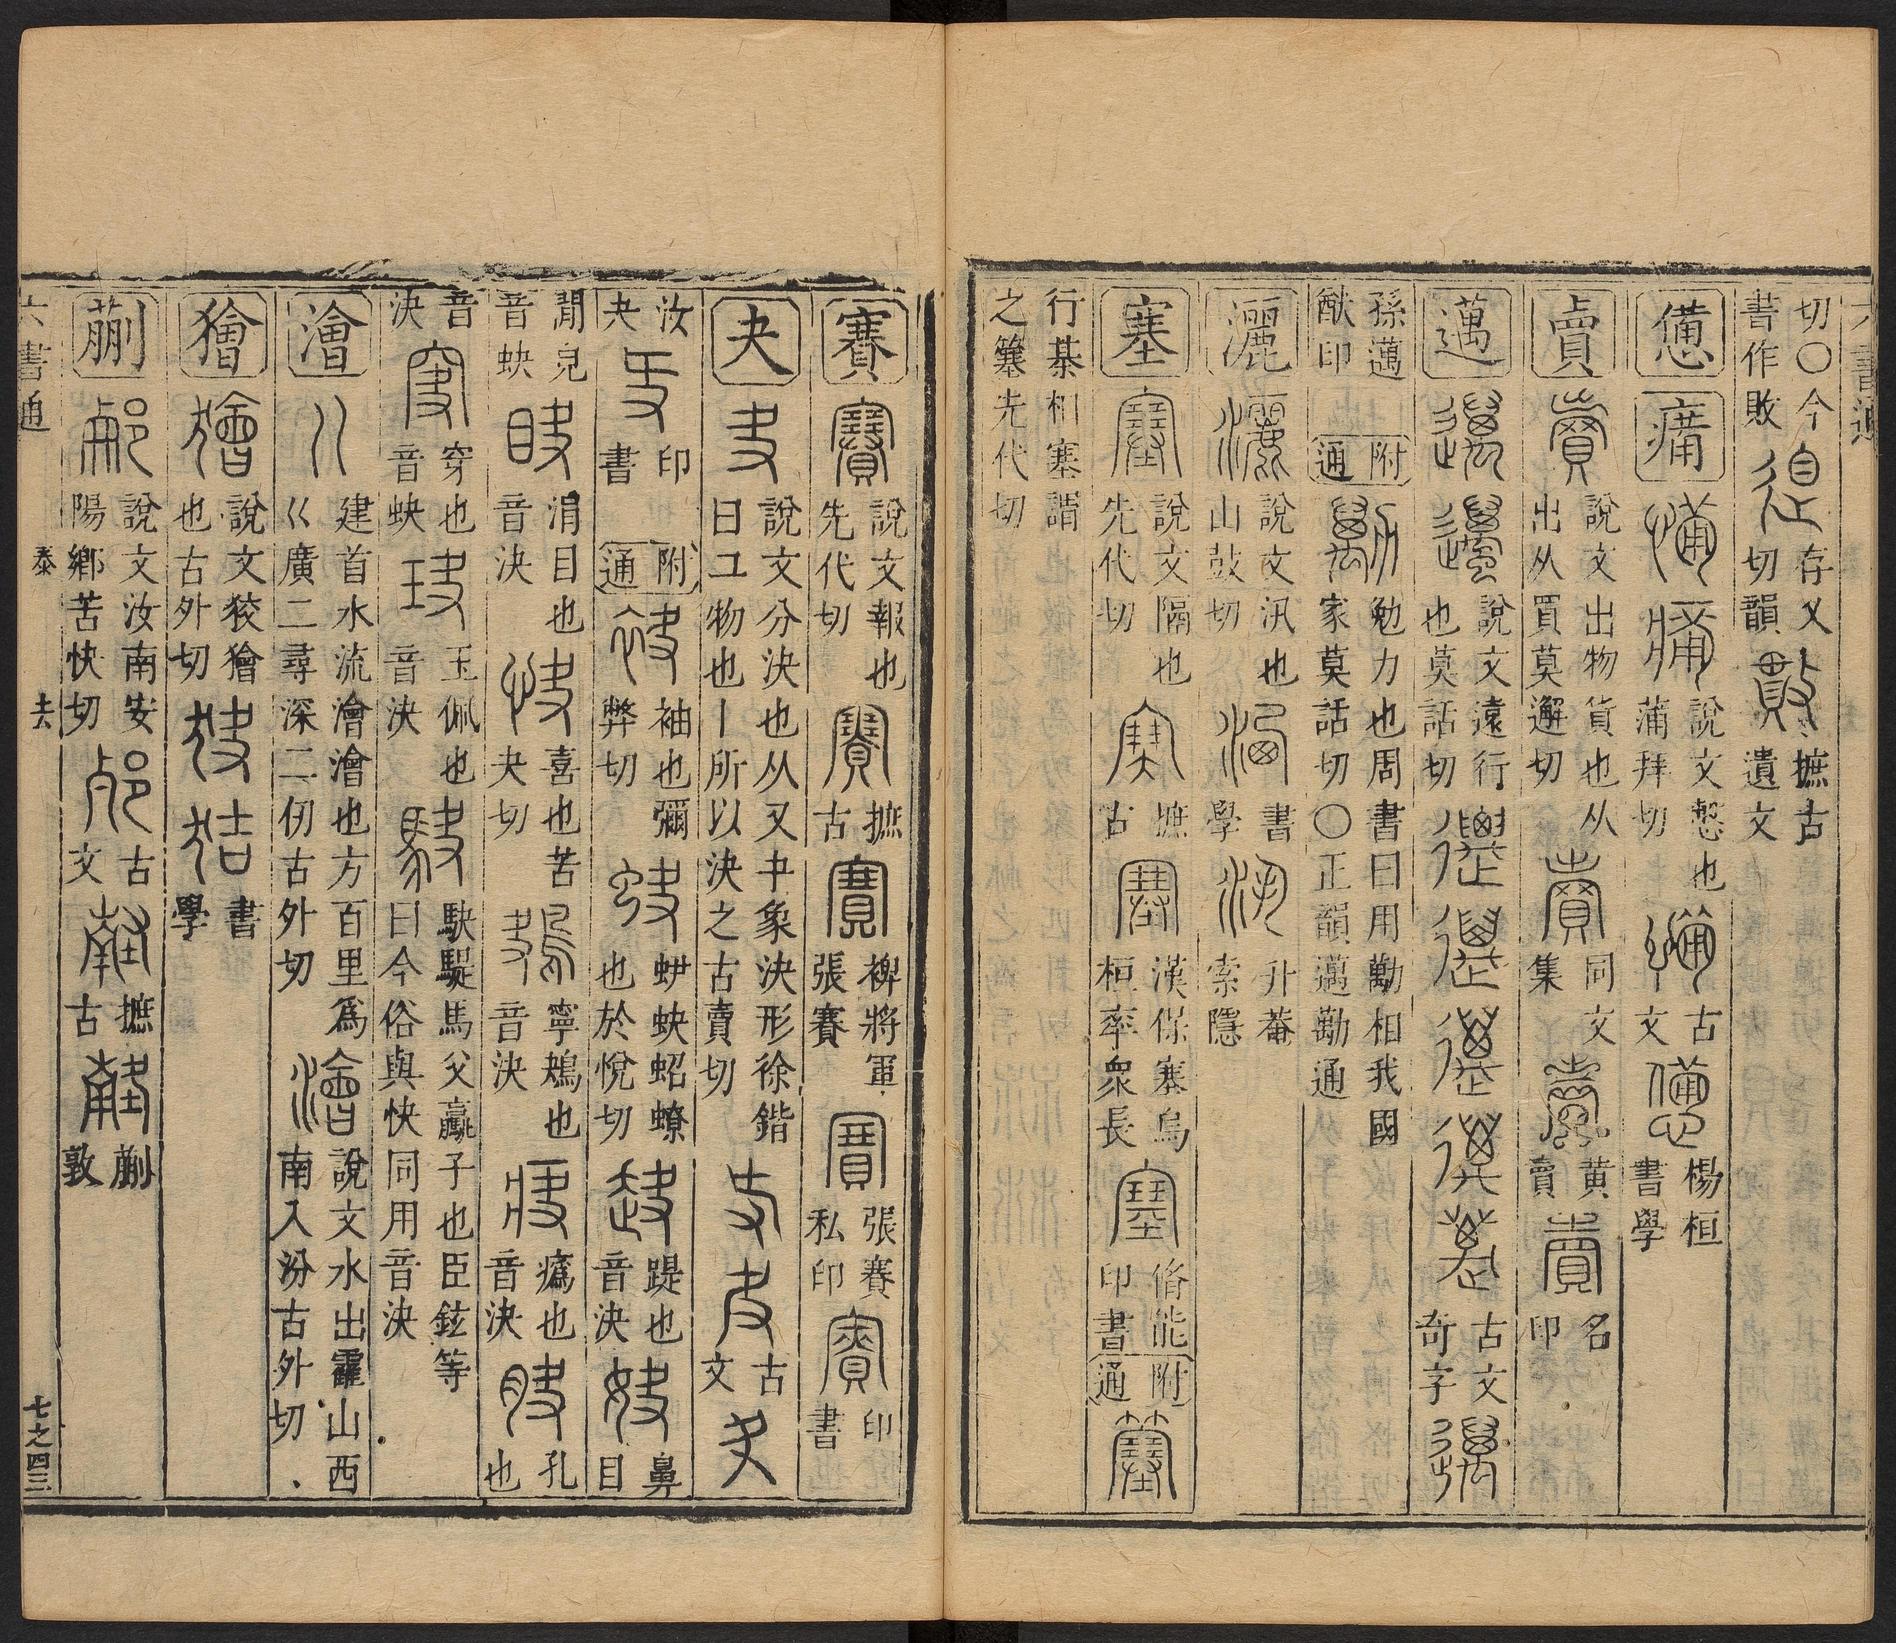 六書通
切〇今 存乂 摭古
書作敗 切韻 遺文
憊 㾕 說文憊也 蒲拜切 古文 楊桓書學
賣 說文出物貨也从出从買莫邂切 同文集 黄賣 名印
邁 說文遠行也莫話切 古文奇字
孫邁猷印 附通 勉力也周書曰用勱相我國家莫話切〇正韻邁勱通
灑 說文汛也山豉切 書學 升菴索隱
塞 說文隔也先代切 摭古 漢保塞烏桓率衆長 脩能印書 附通
行棊相塞謂之簺先代切
賽 說文報也先代切 摭古 裨將軍張賽 張賽私印 印書
夬 說文分決也从又㐄象決形徐鍇曰コ物也丨所以決之古賣切 古文
汝夬 印書 附通 袖也彌弊切 蚈蚗蛁蟟也於悅切 踶也音決 鼻目
閒皃音蚗 涓目也音決 喜也苦夬切 寧鴂也音決 瘑也音決 孔也
音決 穿也音蚗 玉佩也音決 駃騠馬父驘子也臣鉉等曰今俗與快同用音決
澮 建首水流澮澮也方百里爲巜廣二尋深二仞古外切 說文水出霍山西南入汾古外切
獪 說文狡獪也古外切 書學
蒯 說文汝南安陽鄉苦快切 古文 摭古 蒯敦
六書通 泰 去 七之四三